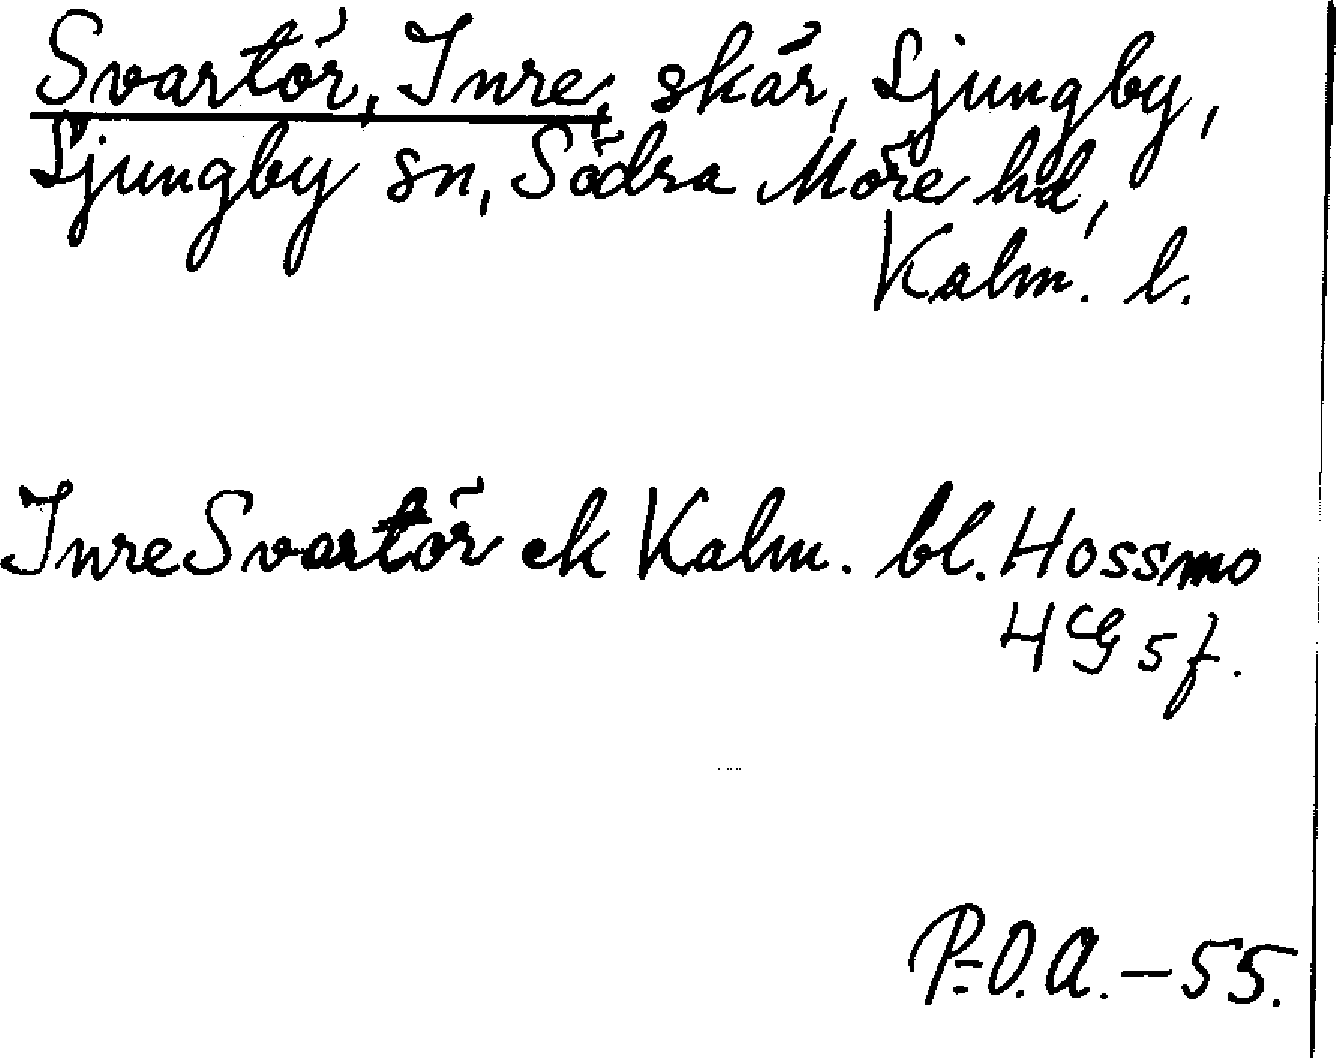 Svartör, Inre, skär, Ljungby,
Ljungby sn, Södra Möre hd,
Kalm. l.
Inre Svartör ek Kalm. bl. Hossmo
4G5f.
P.-O.A.-55.